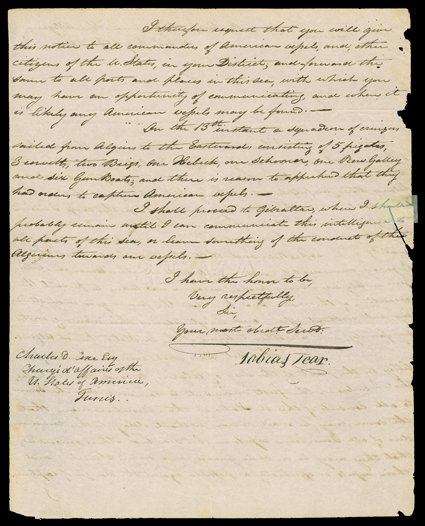 I therefore request that you will give
this notice to all commanders of American vessels, and other
citizens of the U. States, in your District, and forward the
same to all ports and places in this sea, with which you
may have an opportunity of communicating, and where it
is likely any American vessels may be found.—
On the 15th instant a squadron of cruizers
sailed from Algiers to the Eastward, consisting of 5 frigates,
3 corvetts, two Brigs, one Xebeck, one Schooner, one Row Galley
and six Gun Boats; and there is reason to apprehend that they
had orders to capture American vessels.—
I shall proceed to Gibraltar, where I shall
probably remain until I can communicate this intelligence to
all parts of this sea, or learn something of the conduct of the
Algerines towards our vessels.—
I have the honor to be,
Very respectfully
Sir,
Your most obedt Servt.
Tobias Lear.
Charles D. Coxe Esq
Chargé d'affaires of the
U. States of America,
Tunis.